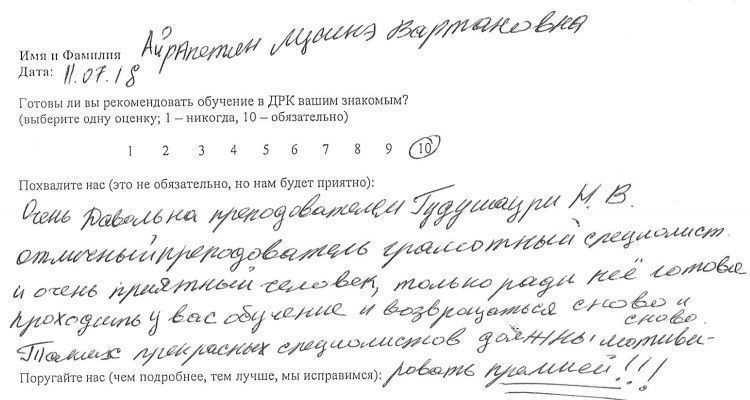 Имя и Фамилия Айрапетян Мусинэ Вартановна
Дата: 11.07.18
Готовы ли вы рекомендовать обучение в ДРК вашим знакомым?
(выберите одну оценку; 1 – никогда, 10 – обязательно)
1 2 3 4 5 6 7 8 9 10
Похвалите нас (это не обязательно, но нам будет приятно):
Очень давольна преподователем Гудушаури Н. В.
отличный преподователь грамотный специолист.
и очень приятный человек, только ради неё готова
проходить у вас обучение и возвращаться сново и
сново.
Таких прекрасных специолистов должны мотиви-
Поругайте нас (чем подробнее, тем лучше, мы исправимся): ровать премией!!!